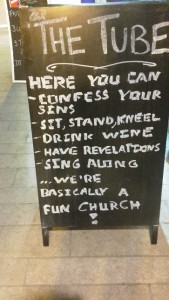 THE TUBE
HERE YOU CAN
- CONFESS YOUR
SINS
- SIT, STAND, KNEEL
- DRINK WINE
- HAVE REVELATIONS
- SING ALONG
...WE'RE
BASICALLY A
FUN CHURCH
!